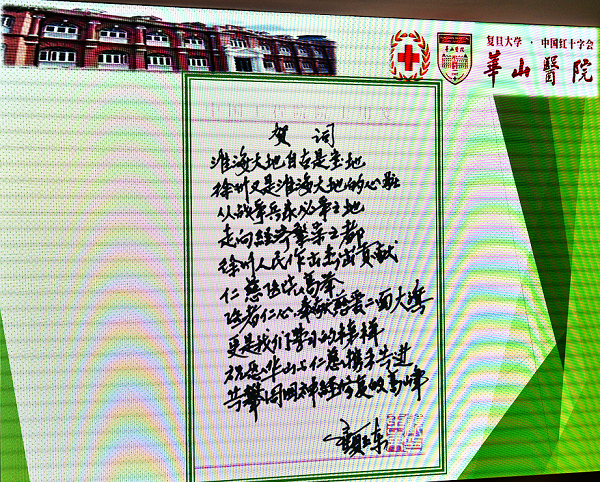 复旦大学·中国红十字会
華山醫院
贺词
淮海大地自古是宝地
徐州又是淮海大地的心脏
从战争兵家必争之地
走向经济繁荣之都
徐州人民作出杰出贡献
仁慈医院高举
医者仁心,奉献慈爱二面大旗
更是我们学习的榜样
祝愿华山与仁慈携手共进
共攀周围神经修复的高峰
顾玉东